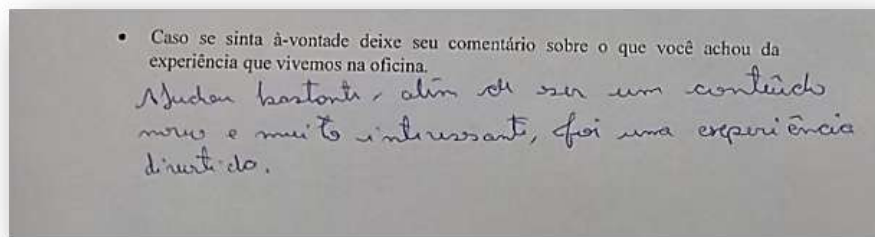 • Caso se sinta à-vontade deixe seu comentário sobre o que você achou da
experiência que vivemos na oficina.
Ajudou bastante, além de ser um conteúdo
novo e muito interessante, foi uma experiência
divertida.